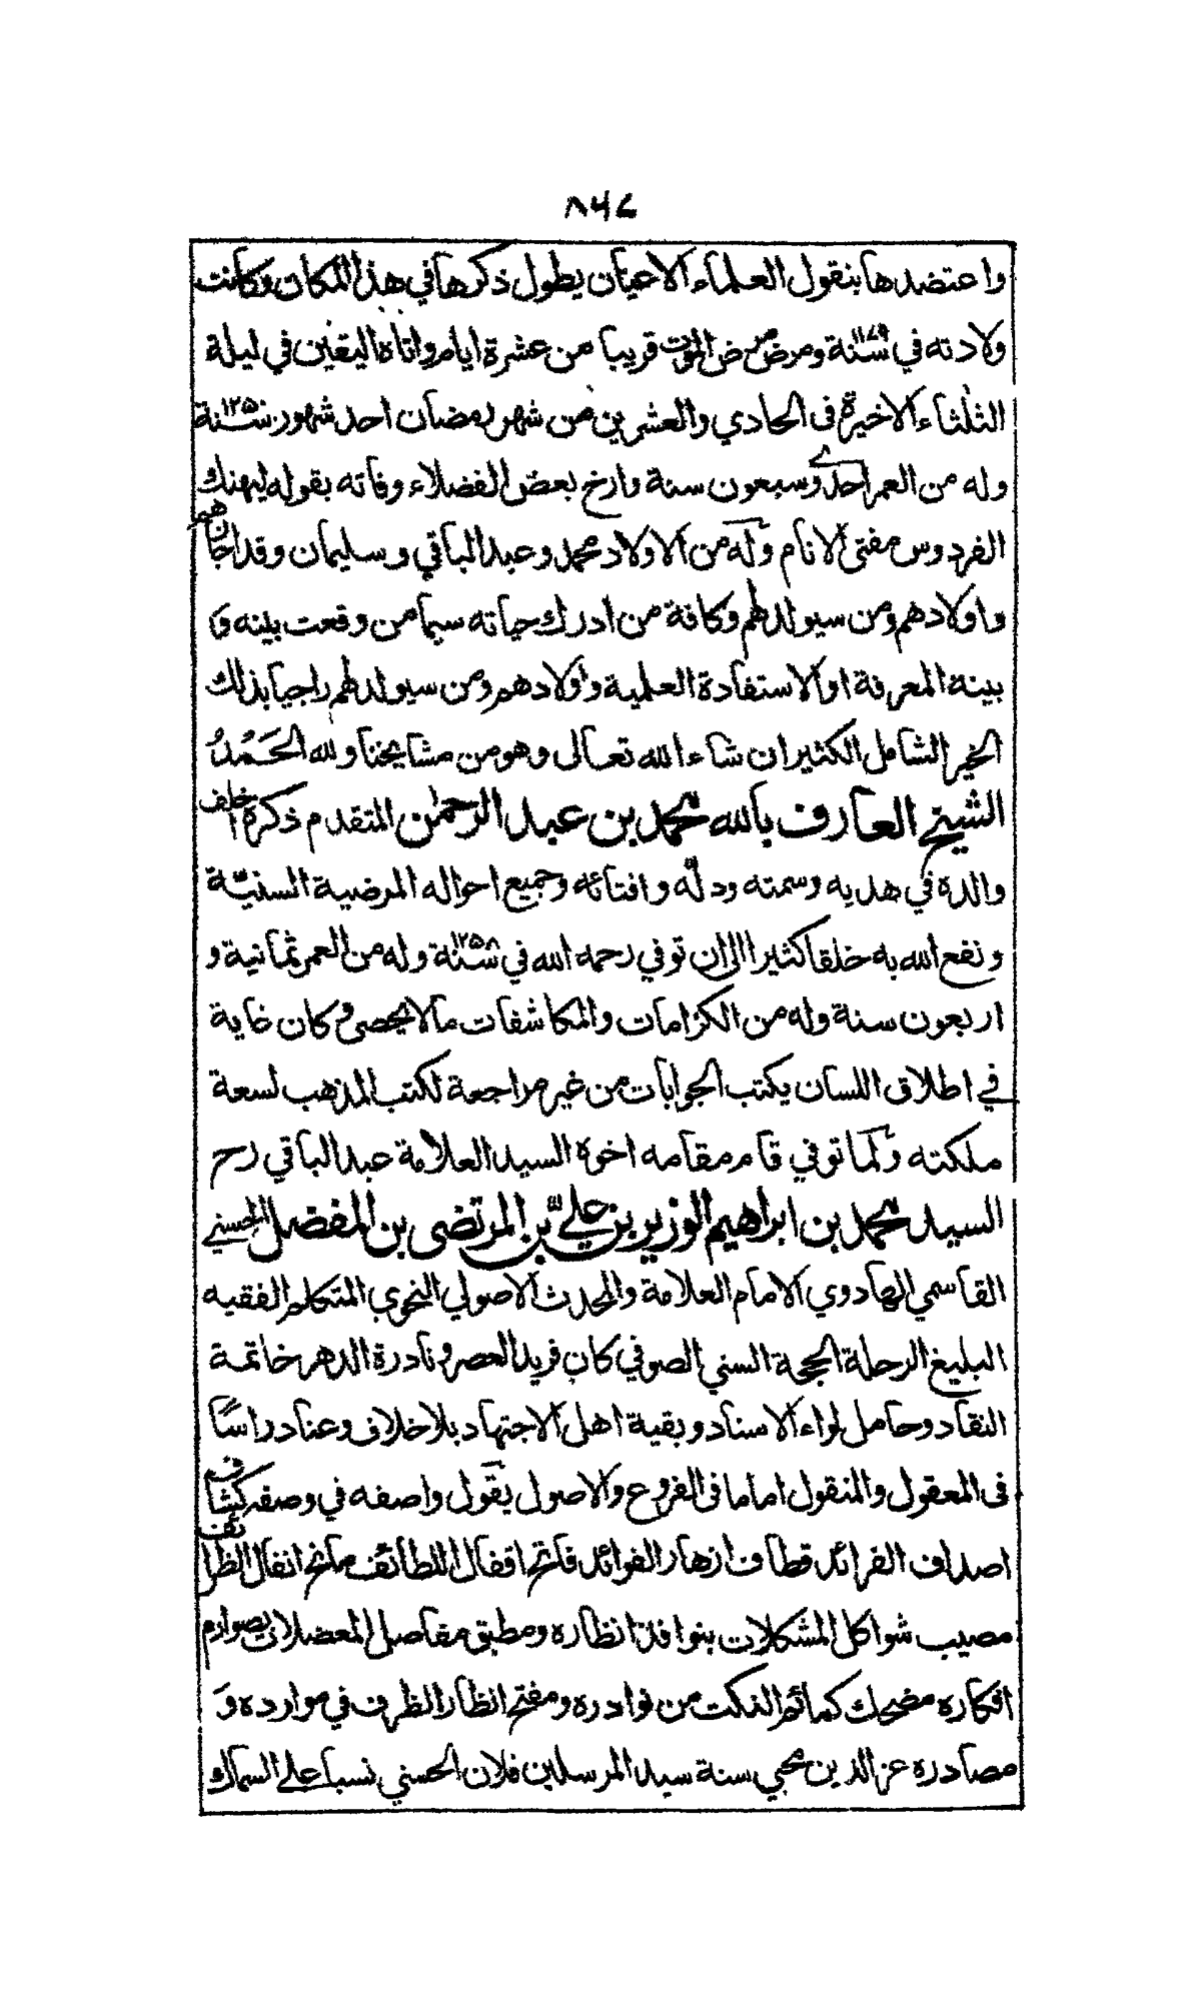 ٨٦٤
واعتضدها بنقول العلماء الاعيان يطول ذكرها في هذا المكان وكانت
ولادته في سنة ١١٧٩ ومرض مرض الموت قريبا من عشرة ايام واتاه اليقين في ليلة
الثلثاء الاخيرة فى الحادي والعشرين من شهر رمضان احد شهور سنة ١٢٥٠
وله من العمر احدى وسبعون سنة وارخ بعض الفضلاء وفاته بقوله ليهنك
الفردوس مفتى الانام وله من الاولاد محمد وعبد الباقي وسليمان وقد اجازهم
واولادهم ومن سيولد لهم وكافة من ادرك حياته سيما من وقعت بينه و
بينه المعرفة او الاستفادة العلمية واولادهم ومن سيولد لهم راجيا بذلك
الخير الشامل الكثير ان شاء الله تعالى وهو من مشايخنا ولله الحَمْدُ
الشيخ العارف بالله محمد بن عبد الرحمن المتقدم ذكره خلف
والده في هديه وسمته ودله وافتائه وجميع احواله المرضية السنيّة
ونفع الله به خلقا كثيرا الى ان توفي رحمه الله في سنة ١٢٥٨ وله من العمر ثمانية و
اربعون سنة وله من الكرامات والمكاشفات ما لا يحصى وكان غاية
في اطلاق اللسان يكتب الجوابات من غير مراجعة لكتب المذهب لسعة
ملكته ولما توفي قام مقامه اخوه السيد العلامة عبد الباقي رح
السيد محمد بن ابراهيم الوزير بن علي بن المرتضى بن المفضل الحسني
القاسمي الهادوي الامام العلامة والمحدث الاصولي النحوي المتكلم الفقيه
البليغ الرحلة الحجة السني الصوفي كان فريد العصر ونادرة الدهر خاتمة
النقاد وحامل لواء الاسناد وبقية اهل الاجتهاد بلا خلاف وعناد راسًا
فى المعقول والمنقول اماما فى الفروع والاصول يقول واصفه في وصفه كشاف
اصداف الفرائد قطاف ازهار الفوائد فاتح اقفال اللطائف مانح انفال الظرائف
مصيب شواكل المشكلات بنوافذ انظاره ومطبق مفاصل المعضلات بصوارم
افكاره مضحك كمائم النكت من نوادره ومفتح انظار الظرف في موارده و
مصادره عز الدين محيي سنة سيد المرسلين فلان الحسني نسبا على السماك